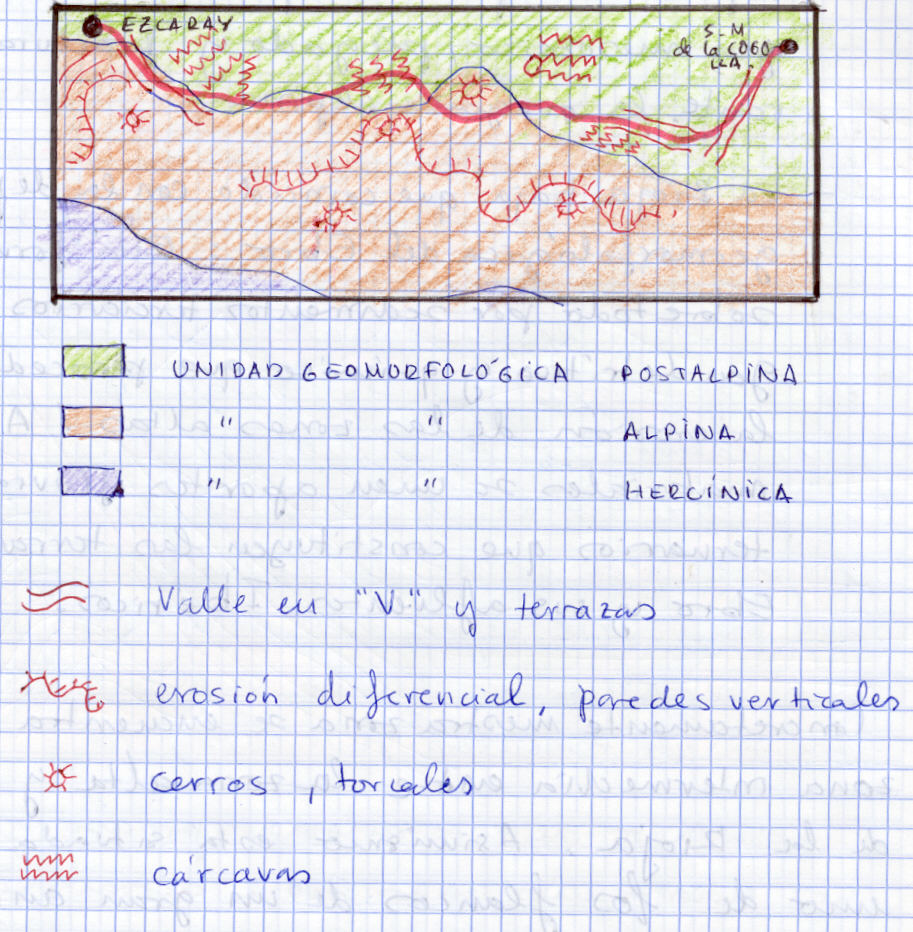 EZCARAY
S-M
de la COGO
LLA.
UNIDAD GEOMORFOLÓGICA POSTALPINA
" " ALPINA
" " HERCÍNICA
Valle en "V" y terrazas
erosión diferencial, paredes verticales
cerros, torcales
cárcavas